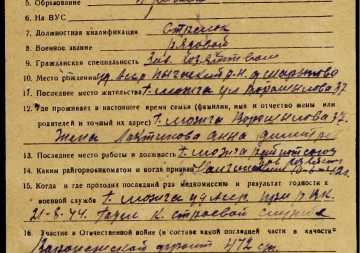 5. Образование
6. На ВУС
7. Должностная квалификация Стрелок
8. Военное звание Рядовой
9. Гражданская специальность Зав. хозяйством
10. Место рождения Уд. Асср Пычасский р-н
11. Последнее место жительства г. Можга ул Ворошилова 37
12. Где проживает в настоящее время семья (фамилия, имя и отчество жены или
родителей и точный их адрес) г. Можга Ворошилова 37
Жена Лактикова Анна
13. Последнее место работы и должность г. Можга
14. Каким райгорвоенкоматом и когда призван
15. Когда и где проходил последний раз медкомиссию и результат годности к
военной службе г. Можга уд. Асср. при РВК.
21-8.44. Годен к строевой службе
16. Участие в Отечественной войне (в составе какой последней части в качестве
Воронежский фронт 472